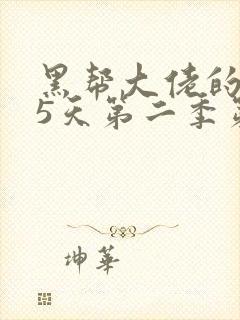 黑帮大佬的
5天第二季第
坤華